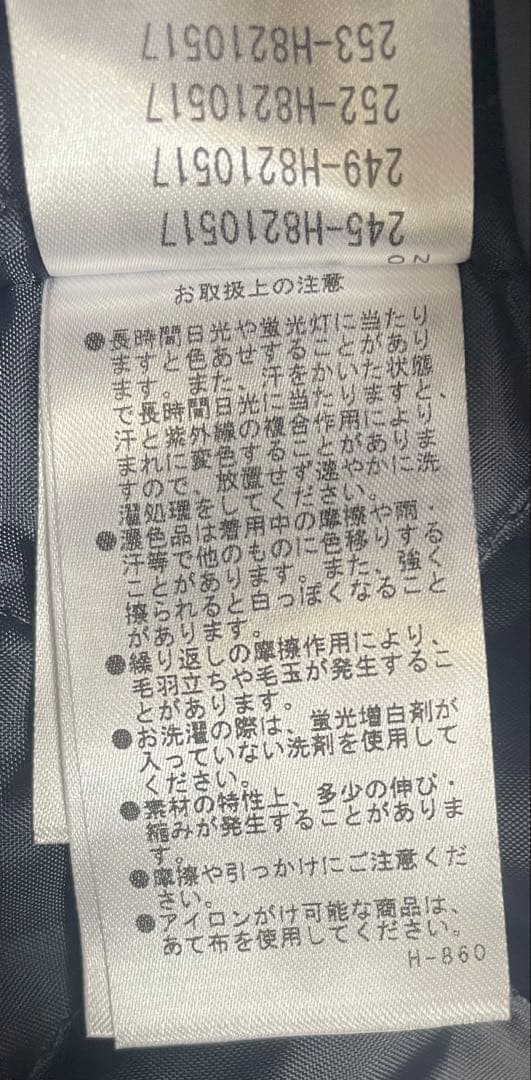 253-H8210517
252-H8210517
249-H8210517
245-H8210517
お取扱上の注意
●長時間日光や蛍光灯に当たり
ますと色あせすることがあり
ます。また、汗をかいた状態
で長時間日光に当たりますと、
汗と紫外線の複合作用により
まれに変色することがありま
すので、放置せず速やかに洗
濯処理をしてください。
●濃色品は着用中の摩擦や雨・
汗等で他のものに色移りする
ことがあります。また、強く
擦られると白っぽくなること
があります。
●繰り返しの摩擦作用により、
毛羽立ちや毛玉が発生するこ
とがあります。
●お洗濯の際は、蛍光増白剤が
入っていない洗剤を使用して
ください。
●素材の特性上、多少の伸び・
縮みが発生することがありま
す。
●摩擦や引っかけにご注意くだ
さい。
●アイロンがけ可能な商品は、
あて布を使用してください。
H-860